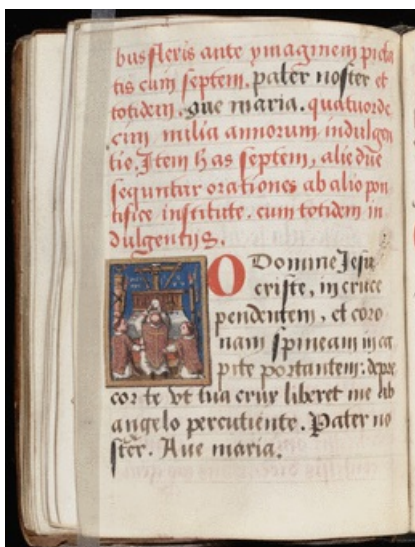 bus flexis ante ymaginem pieta
tis cum septem. pater noster et
totidem. aue maria. quatuorde
cim milia annorum indulgen
tie. Item has septem, alie due
sequntur orationes ab alio pon
tifice institute. cum totidem in
dulgentijs.
O Domine Jesu
criste, in cruce
pendentem, et coro
nam spineam in ca
pite portantem: depre
cor te vt tua crux liberet me ab
angelo percutiente. Pater no
ster. Aue maria.